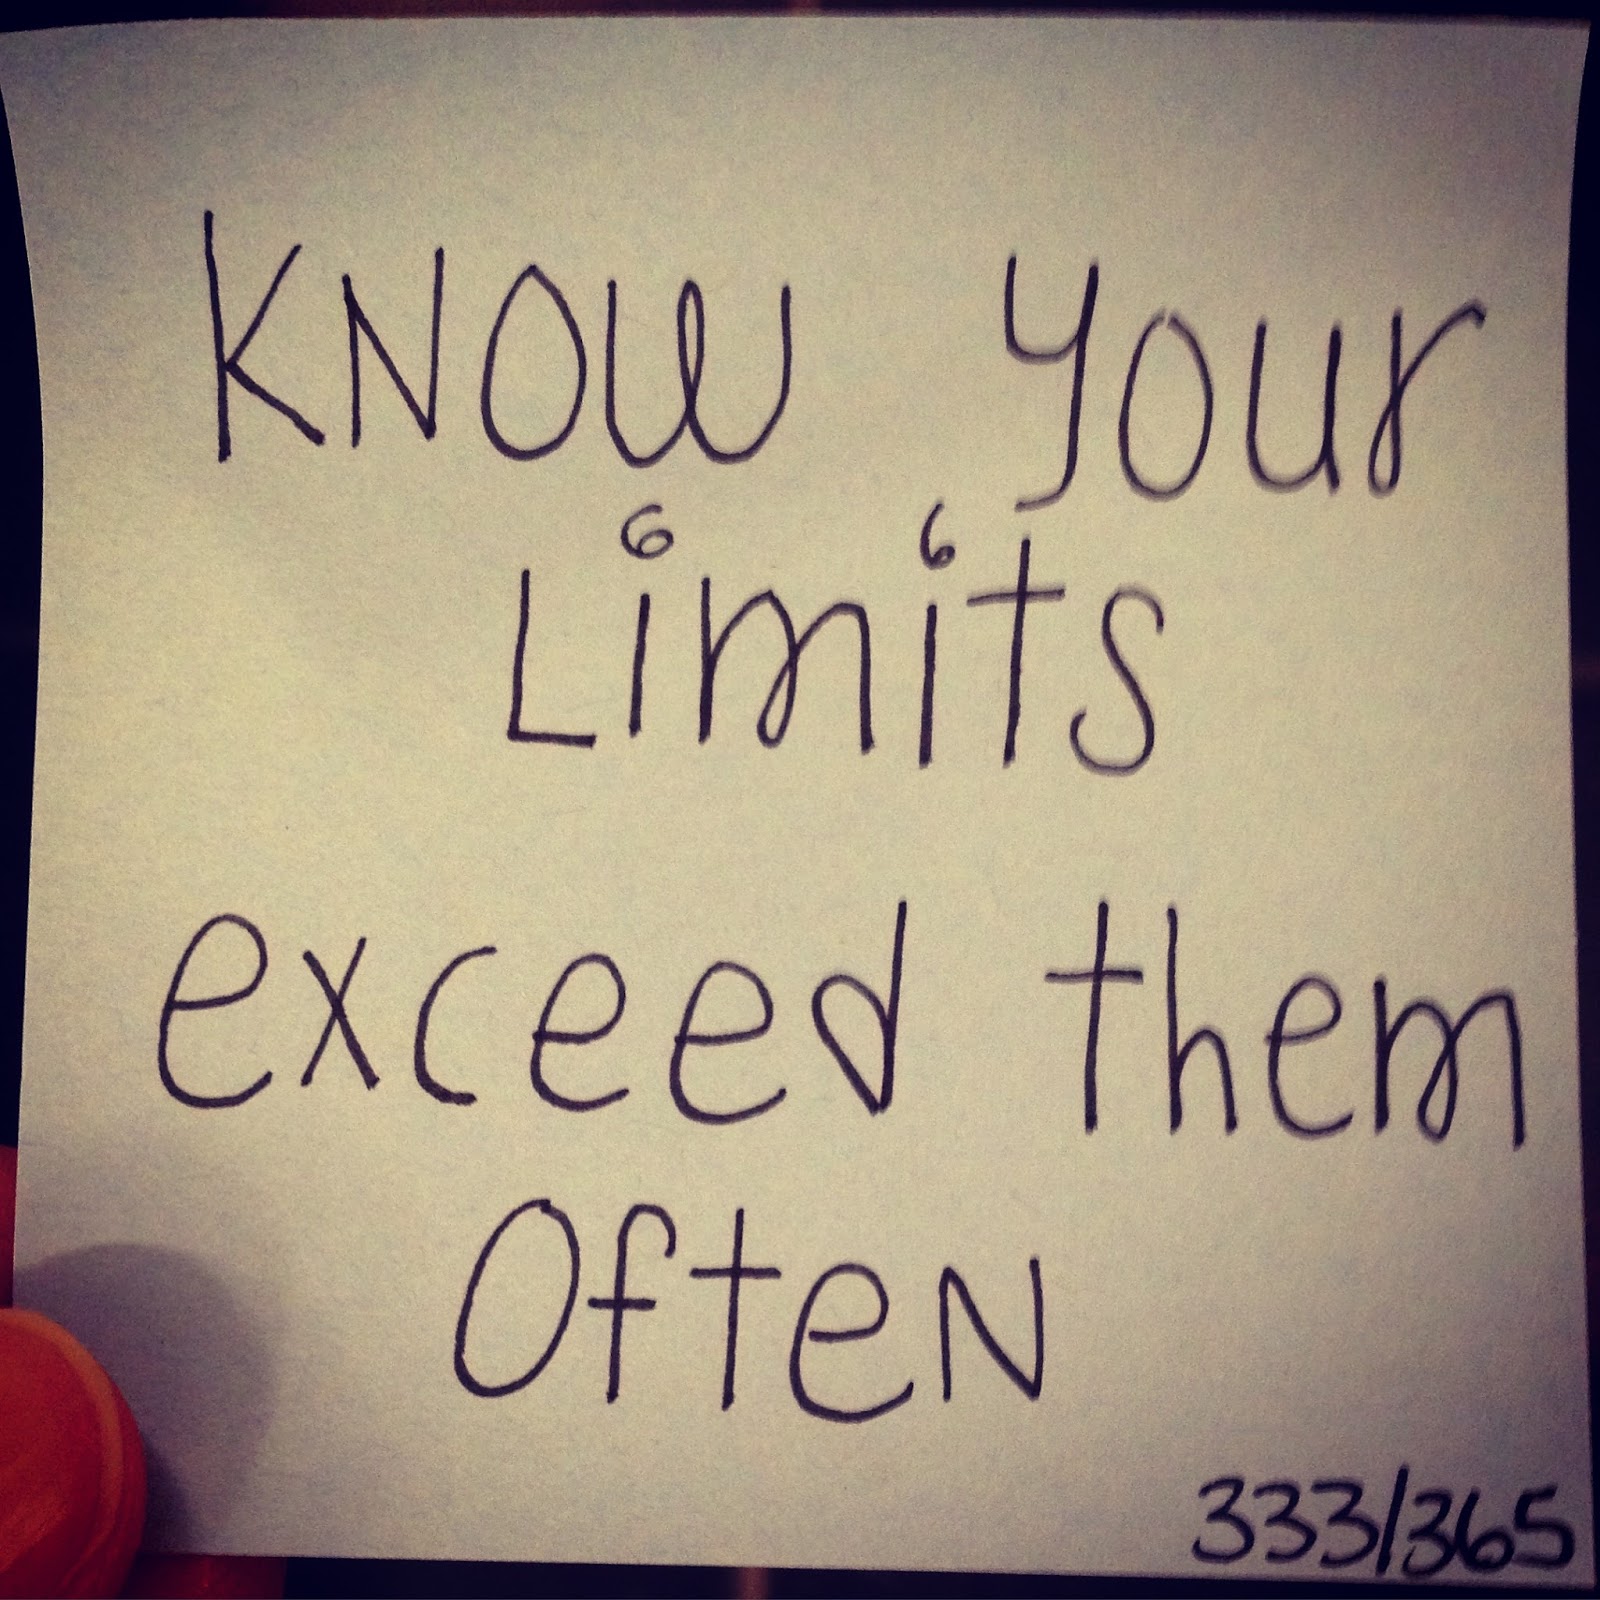 KNOW your
Limits
exceed them
OfteN
333/365